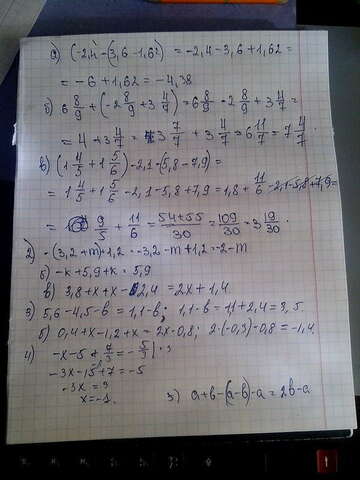 а) (-2,4) - (3,6 - 1,62) = -2,4 - 3,6 + 1,62 =
= -6 + 1,62 = -4,38
б) 6 8/9 + (-2 8/9 + 3 4/7) = 6 8/9 - 2 8/9 + 3 4/7 =
= 4 + 3 4/7 = 3 7/7 + 3 4/7 = 6 11/7 = 7 4/7.
в) (1 4/5 + 1 5/6) - 2,1 - (5,8 - 7,9) =
= 1 4/5 + 1 5/6 - 2,1 - 5,8 + 7,9 = 1,8 + 11/6 - 2,1 - 5,8 + 7,9 =
= 9/5 + 11/6 = 54+55/30 = 109/30 = 3 19/30.
2) - (3,2 + m) + 1,2 = -3,2 - m + 1,2 = -2 - m
б) -к + 5,9 + к = 5,9
в) 3,8 + x + x - 2,4 = 2x + 1,4
3) 5,6 - 4,5 - b = 1,1 - b; 1,1 - b = 1,1 + 2,4 = 3,5
б) 0,4 + x - 1,2 + x = 2x - 0,8; 2·(-0,3) - 0,8 = -1,4
4) -x - 5 + 7/3 = - 5/3 | · 3
-3x - 15 + 7 = -5
-3x = 3
x = -1.
5) a + b - (a - b) - a = 2b - a